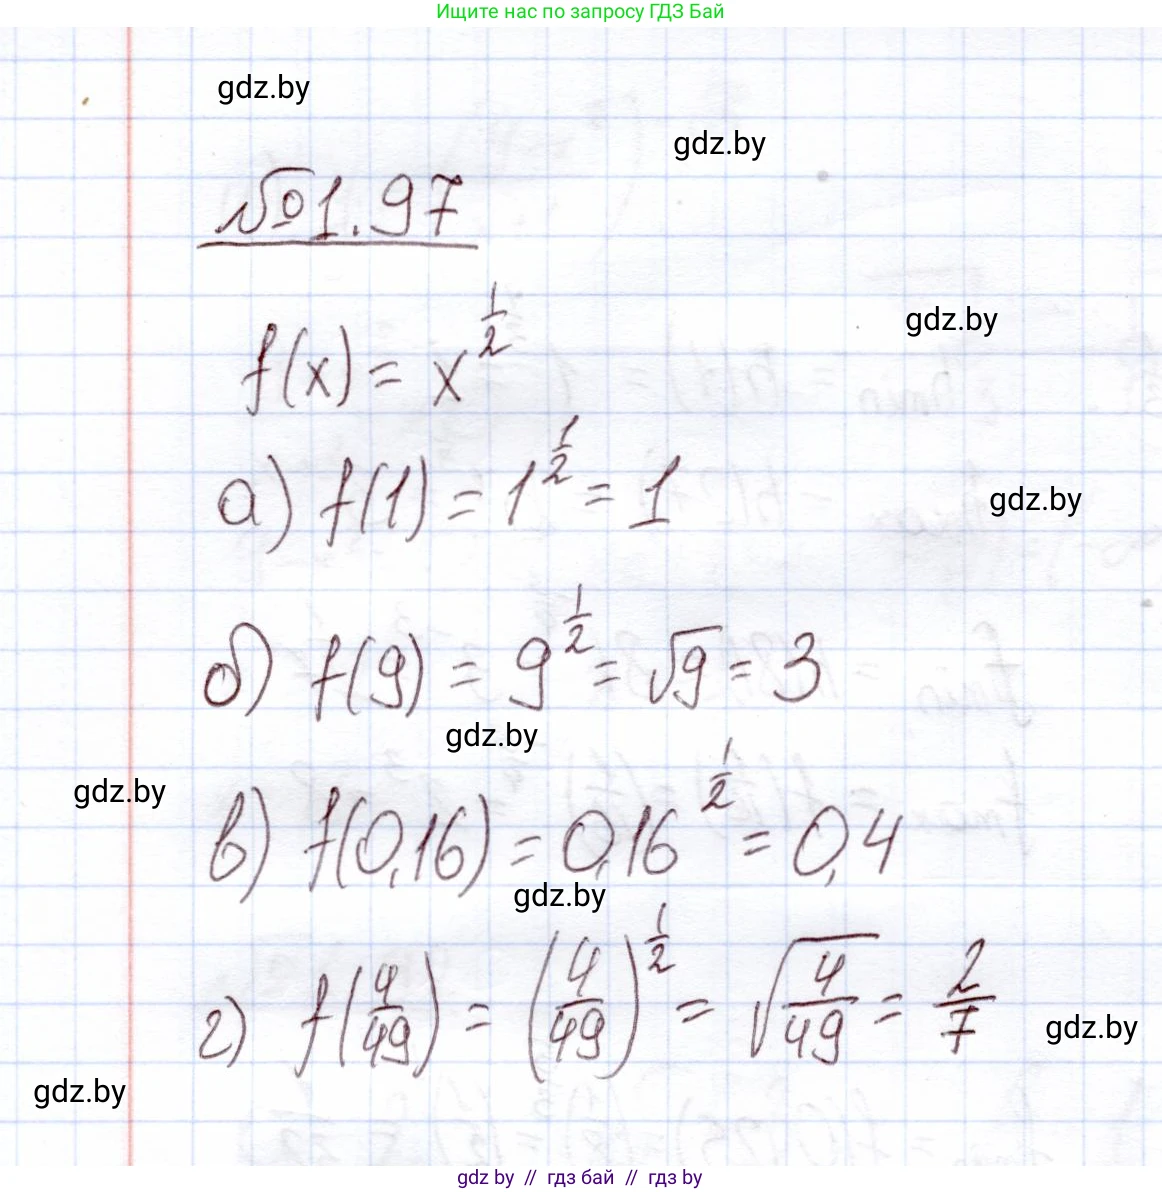 Ищите нас по запросу ГДЗ Бай
gdz.by
gdz.by
№1.97
gdz.by
f(x) = x^{1/2}
а) f(1) = 1^{1/2} = 1
gdz.by
б) f(9) = 9^{1/2} = √9 = 3
gdz.by
gdz.by
в) f(0,16) = 0,16^{1/2} = 0,4
gdz.by
г) f(4/49) = (4/49)^{1/2} = √(4/49) = 2/7
gdz.by
gdz.by
gdz by // гдз бай // гдз by